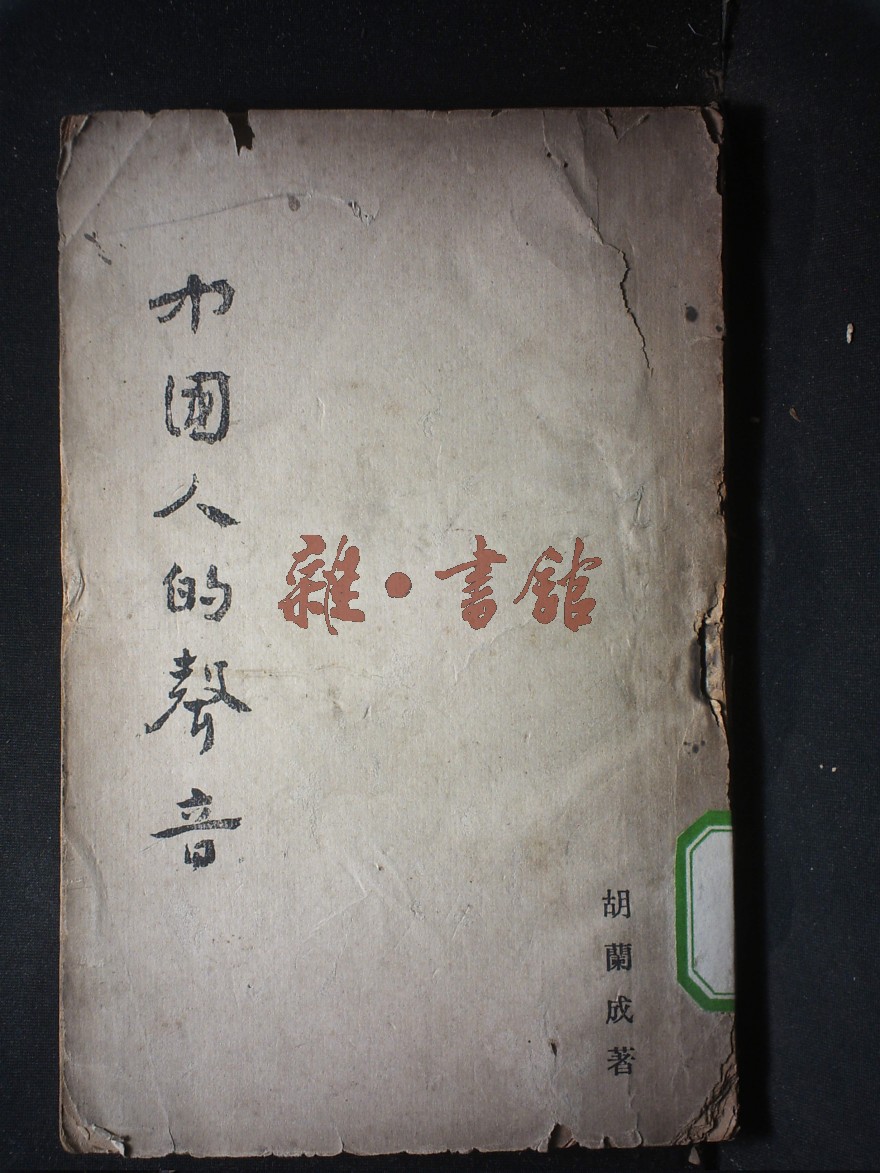 中国人的聲音
雜·書館
胡蘭成著